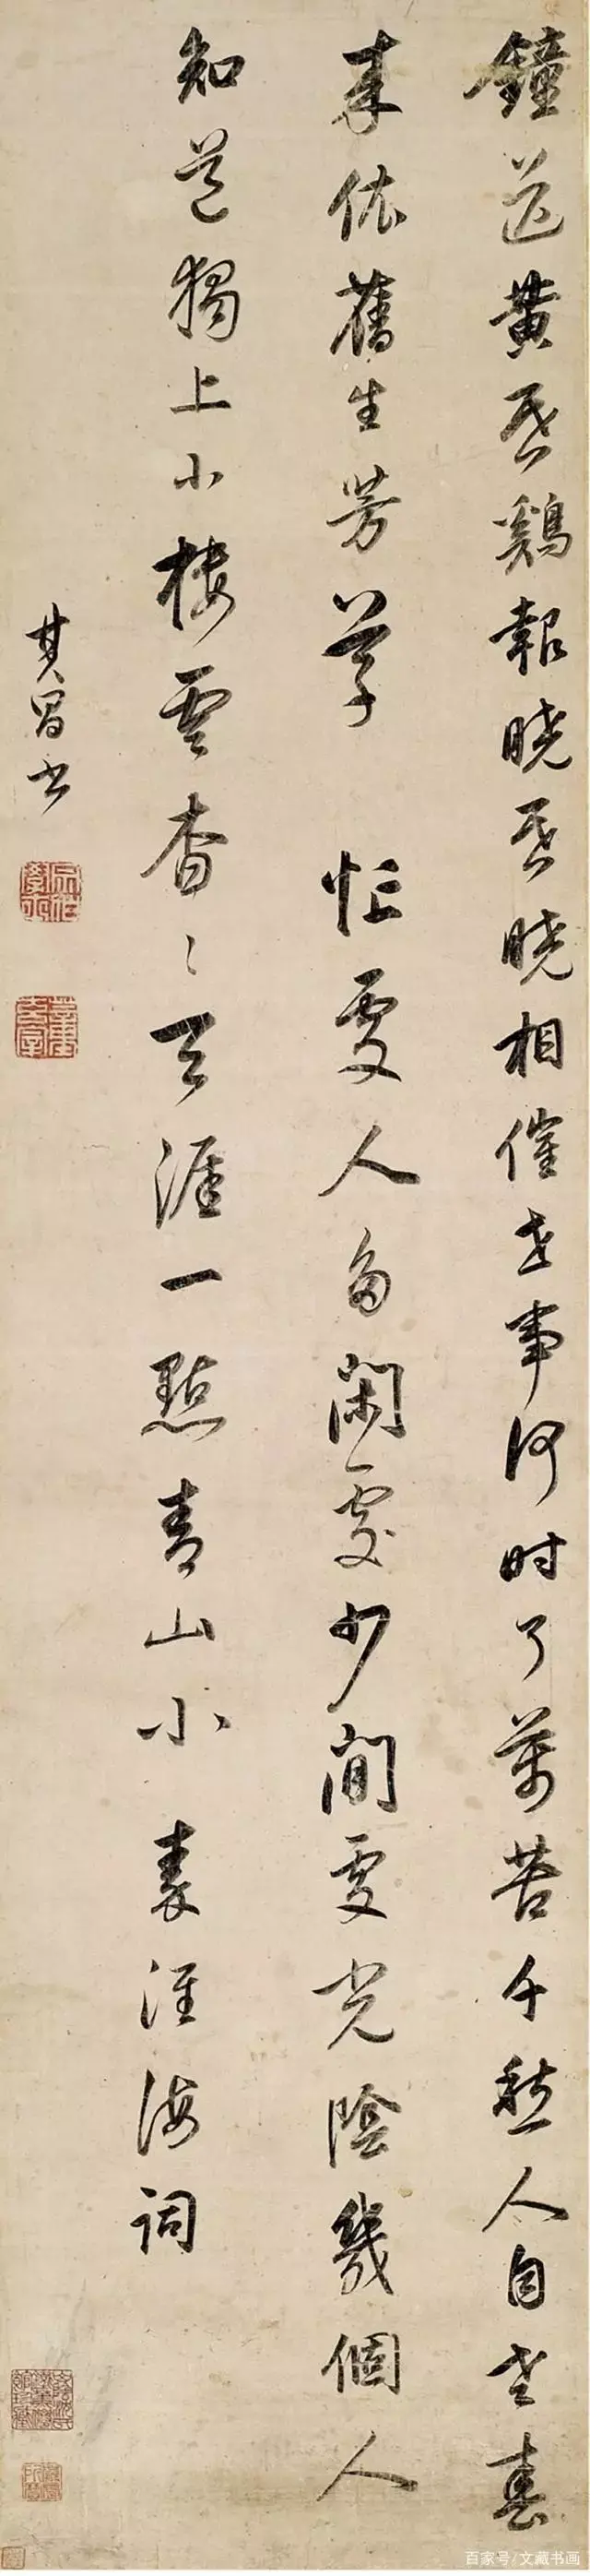 鐘送黃昏鷄報曉昏曉相催世事何時了萬苦千愁人自老春
來依舊生芳草 忙處人多閑處少閒處光陰幾個人
知道獨上小樓雲杳杳天涯一點青山小 秦淮海詞
其昌書
百家号/文藏书画